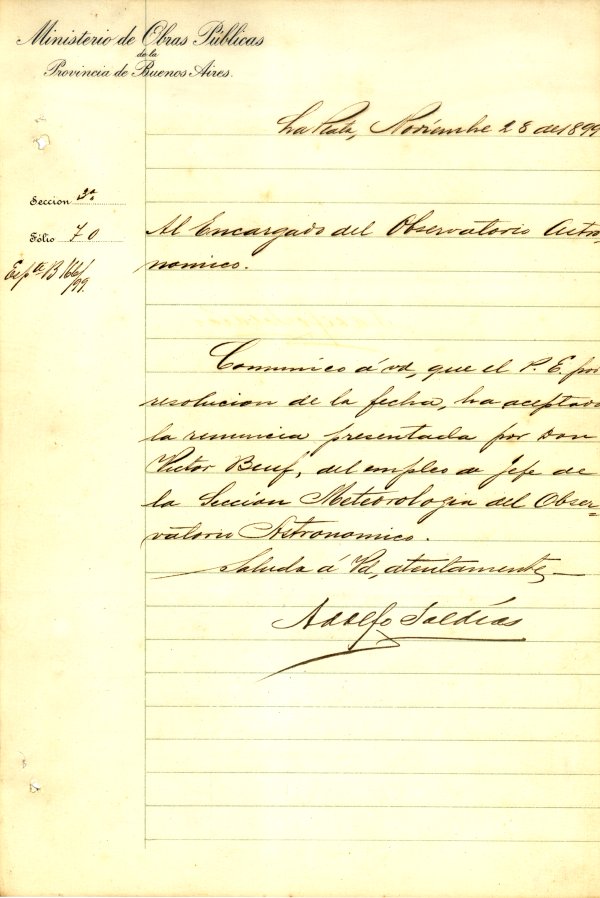 Ministerio de Obras Públicas
de la
Provincia de Buenos Aires.
La Plata, Noviembre 28 de 1899
Seccion 3a
Fólio 70
Expte B 166/99.
Al Encargado del Observatorio Astro-
nomico.
Comunico á vd, que el P. E. por
resolucion de la fecha, ha aceptado
la renuncia presentada por Don
Victor Beuf, del empleo de Jefe de
la Sección Meteorologia del Obser=
vatorio Astronomico.
Saluda á Vd, atentamente
Adolfo Saldías